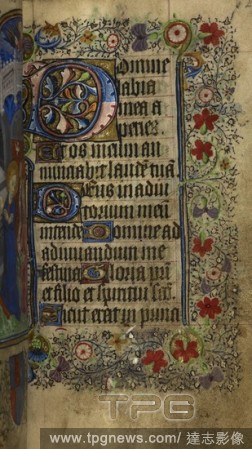 Domine
labia
mea a
peries.
Et os meum an
nunciabit laudē tuā.
Deus in adiu
torium meū
intende Domine ad
adiuvandum me
festina Gloria pri
et filio et spiritui sco.
Sicut erat in princi
TPG
www.tpgnews.com/ 達志影像